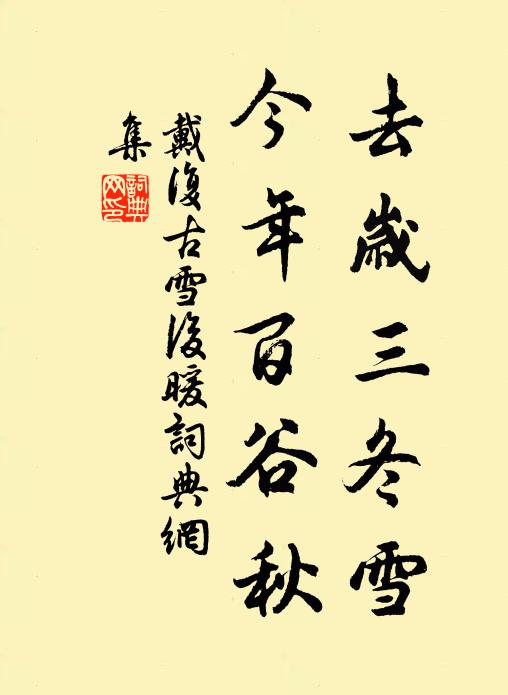 去歲三冬雪
今年百谷秋
戴復古雪後暖詞典網
集
詞典
网印